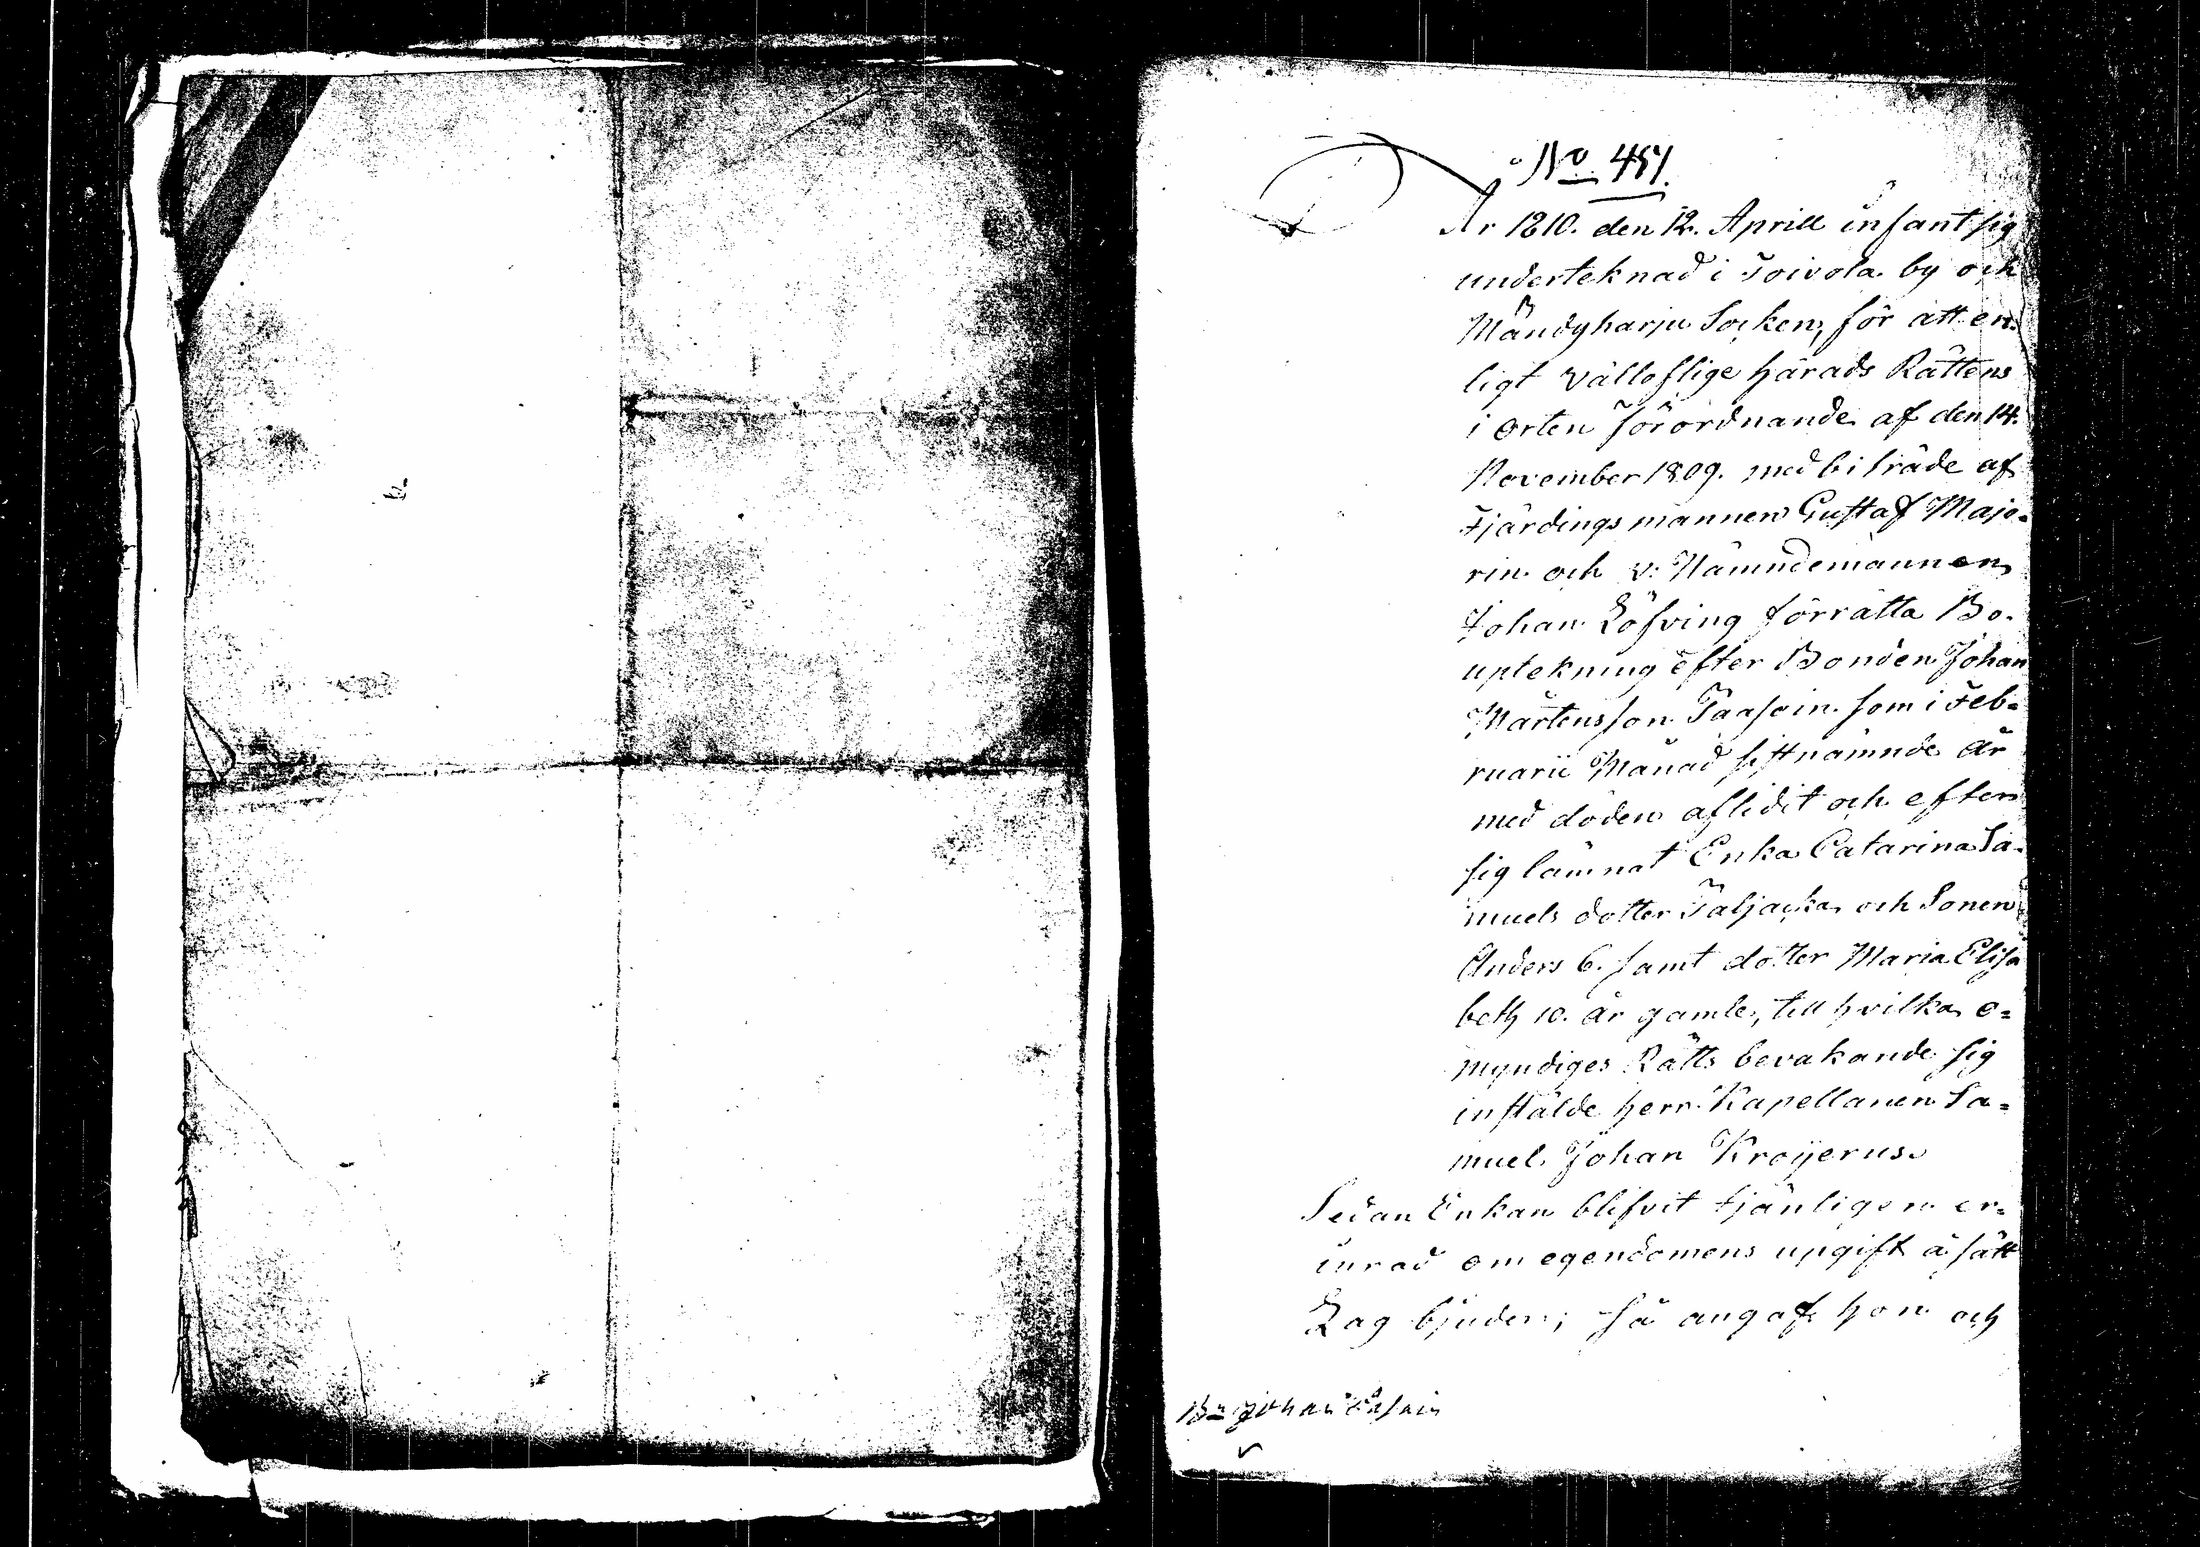 No 451.
År 1810. den 12. Aprill infant sig
underteknad i Toivola by och
Mändyharju Socken, för att en-
ligt Välloflige Härads Rättens
i orten förordnande af den 14.
November 1809. med biträde af
Fjärdingsmannen Gustaf Majo-
rin och v: Nämndemannen
Johan Löfving förrätta Bo-
uptekning efter Bonden Johan
Mårtensson Taasoin som i Feb-
ruarii Månad sistnämnde år
med döden aflidit och efter
sig lämnat Enka Catarina Sa-
muels dotter Taljacka och Sonen
Anders 6. samt dotter Maria Elisa
beth 10. år gamle, till hvilka o-
myndiges Rätts bevakande sig
instälde herr Kapellanen Sa-
muel Johan Kroÿerus.
Sedan Enkan blifvit tjänligen er-
inrad om egendomens upgift å sätt
Lag bjuder; så angaf hon och
Bn Johan